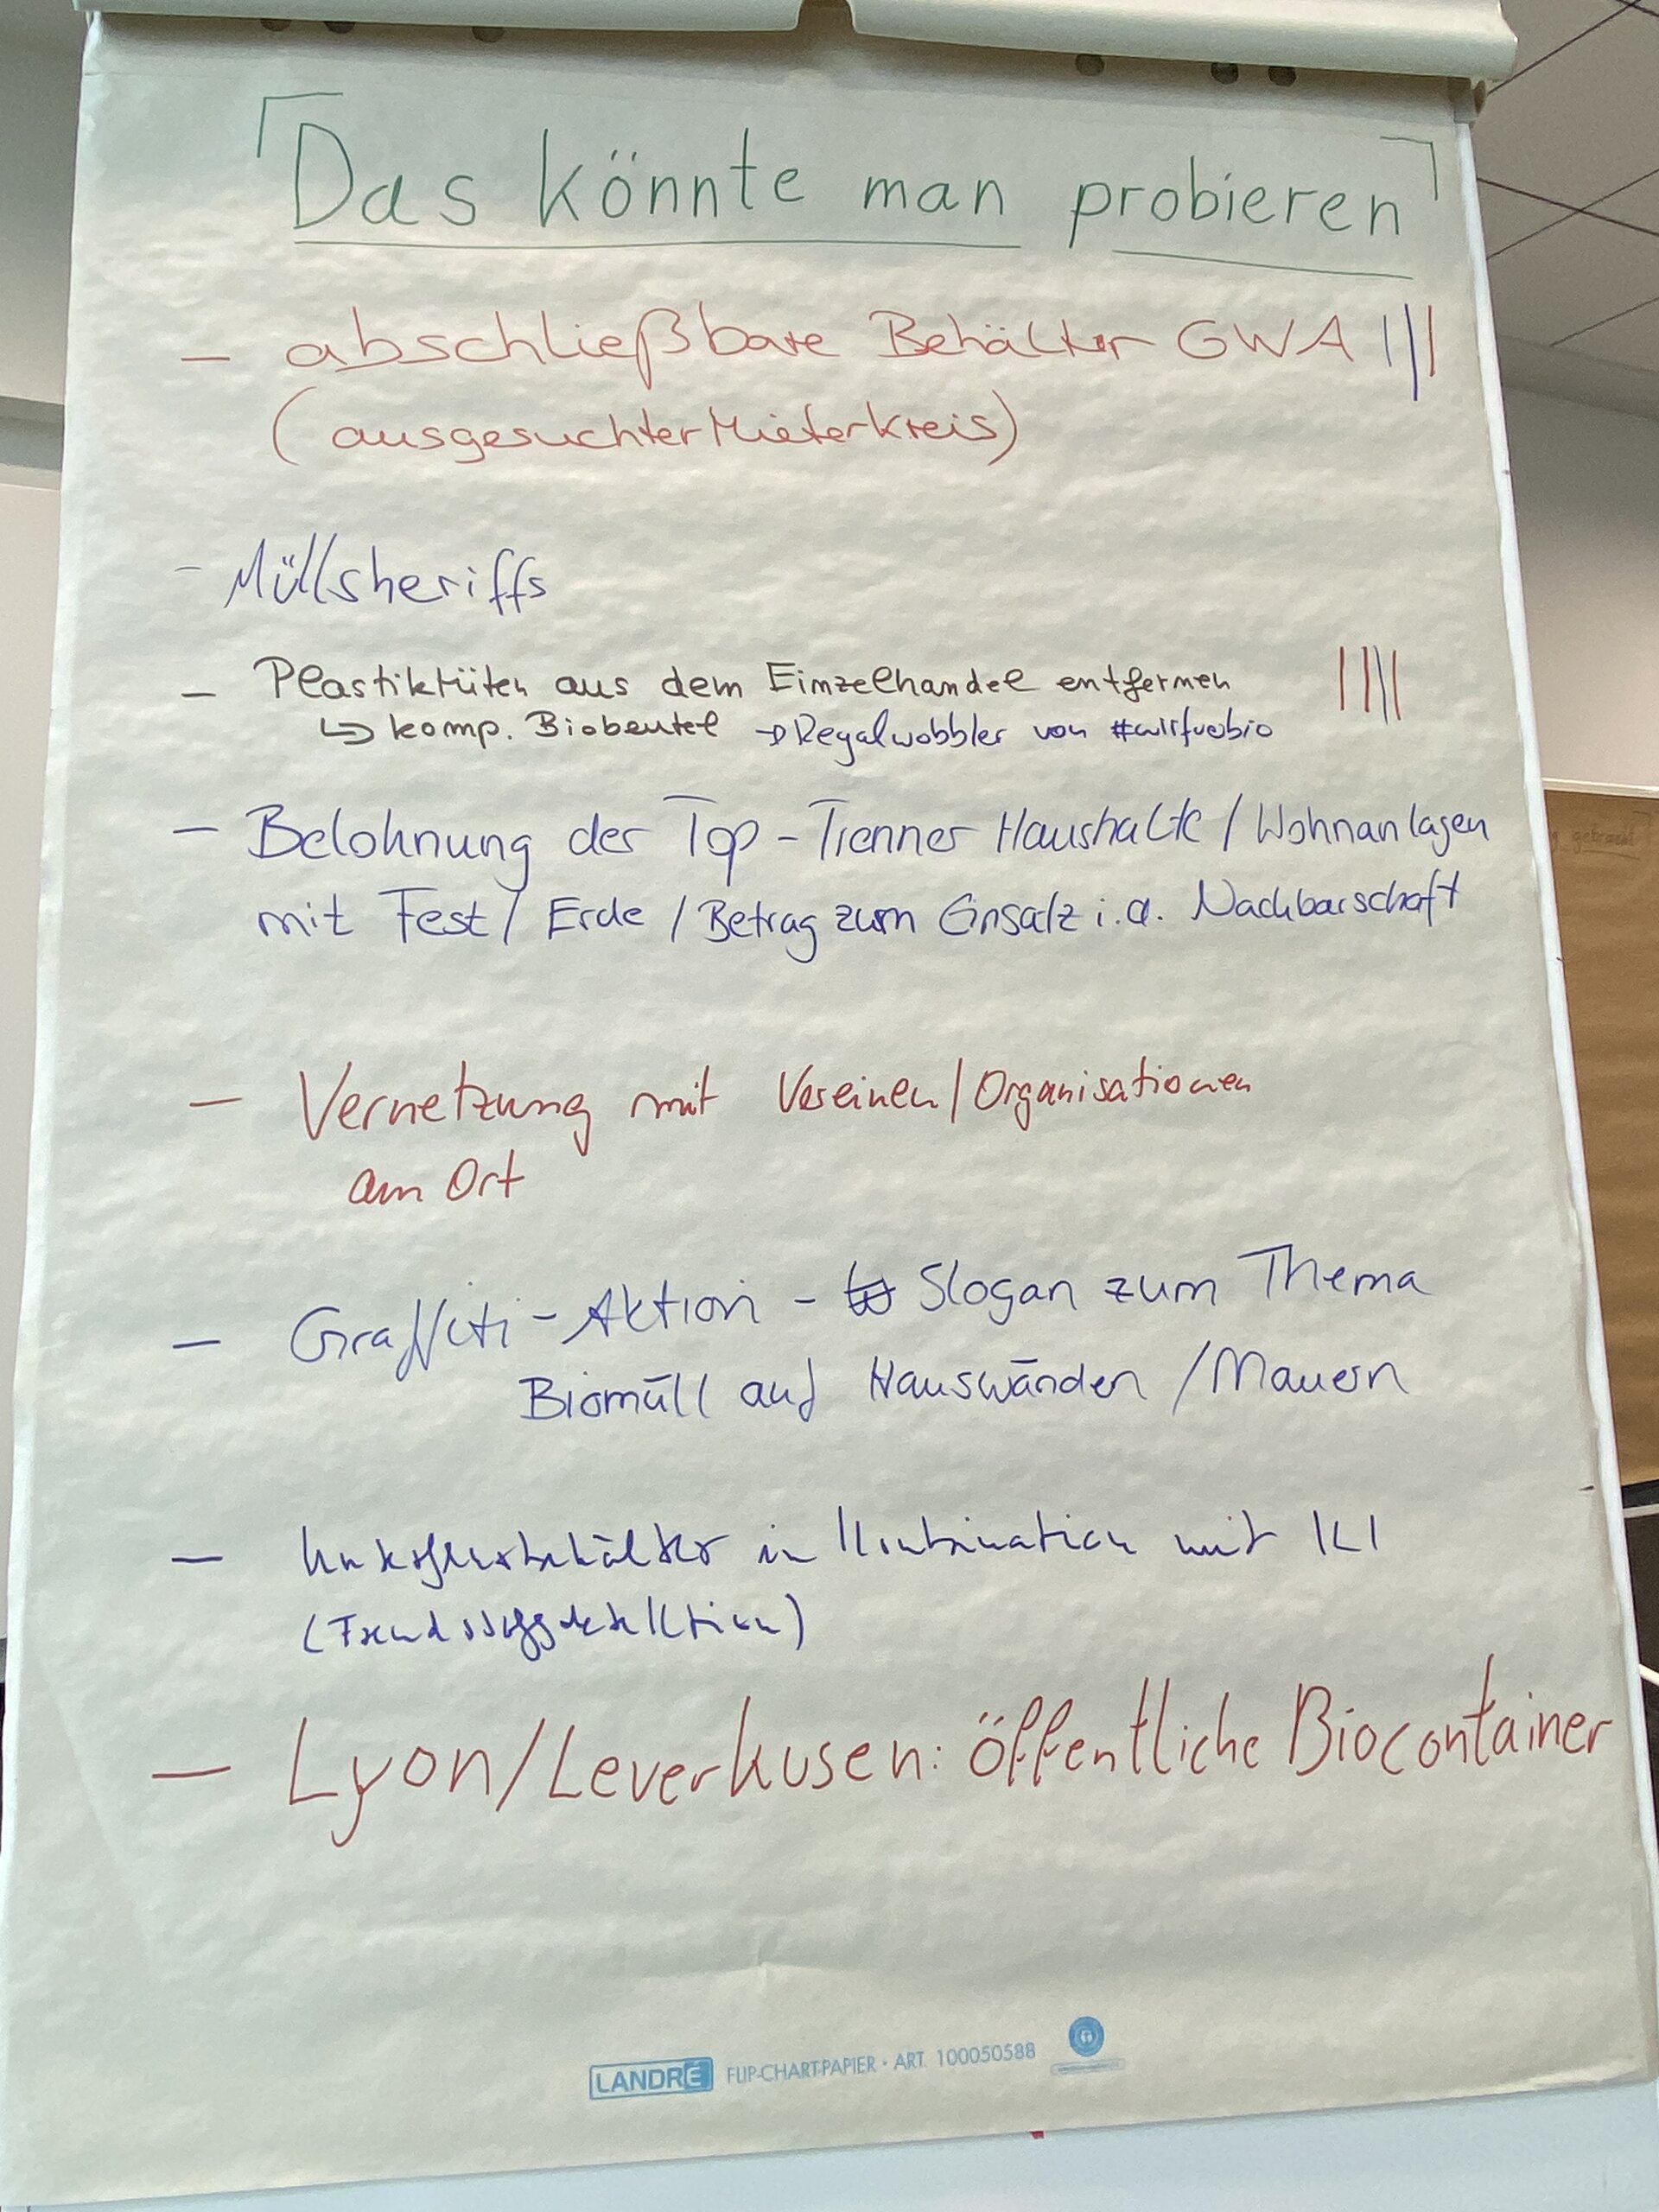 Das könnte man probieren
- abschließbare Behälter GWA |||
(ausgesuchter Mieterkreis)
- Müllsheriffs
- Plastiktüten aus dem Einzelhandel entfernen |||||
↳ komp. Biobeutel → Regalwobbler von #wirfuerbio
- Belohnung der Top-Trenner Haushalte / Wohnanlagen
mit Fest / Erde / Betrag zum Einsatz i.d. Nachbarschaft
- Vernetzung mit Vereinen / Organisationen
am Ort
- Graffiti-Aktion - Slogan zum Thema
Biomüll auf Hauswänden / Mauern
- Unterflurbehälter in Kombination mit KI
(Fremdstoffdetektion)
- Lyon/Leverkusen: öffentliche Biocontainer
LANDRÉ FLIP-CHART-PAPIER • ART. 100050588